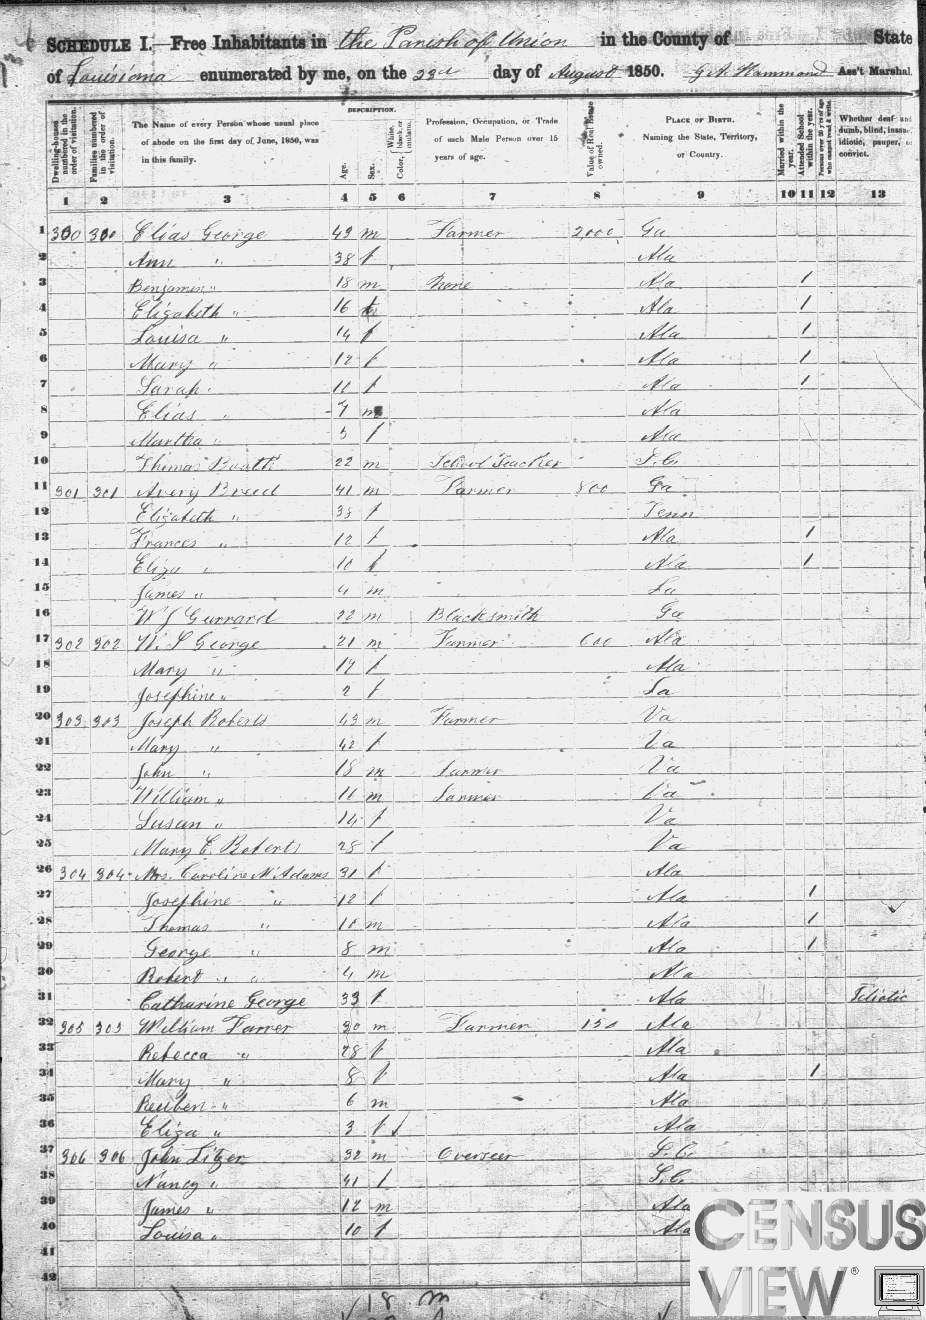 SCHEDULE I.—Free Inhabitants in the Parish of Union in the County of State
of Louisiana enumerated by me, on the 23d day of August 1850. G A Hammond Ass't Marshal.
Dwelling-houses numbered in the order of visitation.
Families numbered in the order of visitation.
The Name of every Person whose usual place of abode on the first day of June, 1850, was in this family.
DESCRIPTION.
Age.
Sex.
White, black, or mulatto. Color,
Profession, Occupation, or Trade of each Male Person over 15 years of age.
Value of Real Estate owned.
PLACE OF BIRTH. Naming the State, Territory, or Country.
Married within the year.
Attended School within the year.
Persons over 20 y'rs of age who cannot read & write.
Whether deaf and dumb, blind, insane, idiotic, pauper, or convict.
1 2 3 4 5 6 7 8 9 10 11 12 13
1 300 300 Elias George 49 m Farmer 2000 Ga
2 Ann " 38 f Ala
3 Benjamen " 18 m None Ala 1
4 Elizabeth " 16 Ala 1
5 Louisa " 14 f Ala 1
6 Mary " 12 f Ala 1
7 Sarah " f Ala 1
8 Elias " 7 m Ala
9 Martha " 5 f Ala
10 Thomas Booth 22 m School Teacher S.C.
11 301 301 Avery Breed 41 m Farmer 800 Ga
12 Elizabeth " f Tenn
13 Frances " 12 f Ala 1
14 Eliza " 10 f Ala 1
15 James " 4 m La
16 W J Garrard 22 m Blacksmith Ga
17 302 302 W. S George 21 m Farmer 600 Ala
18 Mary " f Ala
19 Josephine " 2 f La
20 303 303 Joseph Roberts 43 m Farmer Va
21 Mary " 42 f Va
22 John " 18 m Farmer Va
23 William " m Farmer Va
24 Susan " 14 f Va
25 Mary E. Roberts 28 f Va
26 304 304 Mrs. Caroline McAdams 31 f Ala
27 Josephine " 12 f Ala 1
28 Thomas " 10 m Ala 1
29 George " 8 m Ala 1
30 Robert " " 4 m Ala
31 Catharine George 33 f Ala Idiotic
32 305 305 William Farrer 30 m Farmer 150 Ala
33 Rebecca " 28 f Ala
34 Mary " 8 f Ala 1
35 Reuben " 6 m Ala
36 Eliza " 3 f Ala
37 306 306 John Litzer 32 m Overseer S.C.
38 Nancy " 41 f S.C.
39 James " 12 m Ala
40 Louisa " 10 f Ala
41
42
18 m
CENSUS
VIEW®